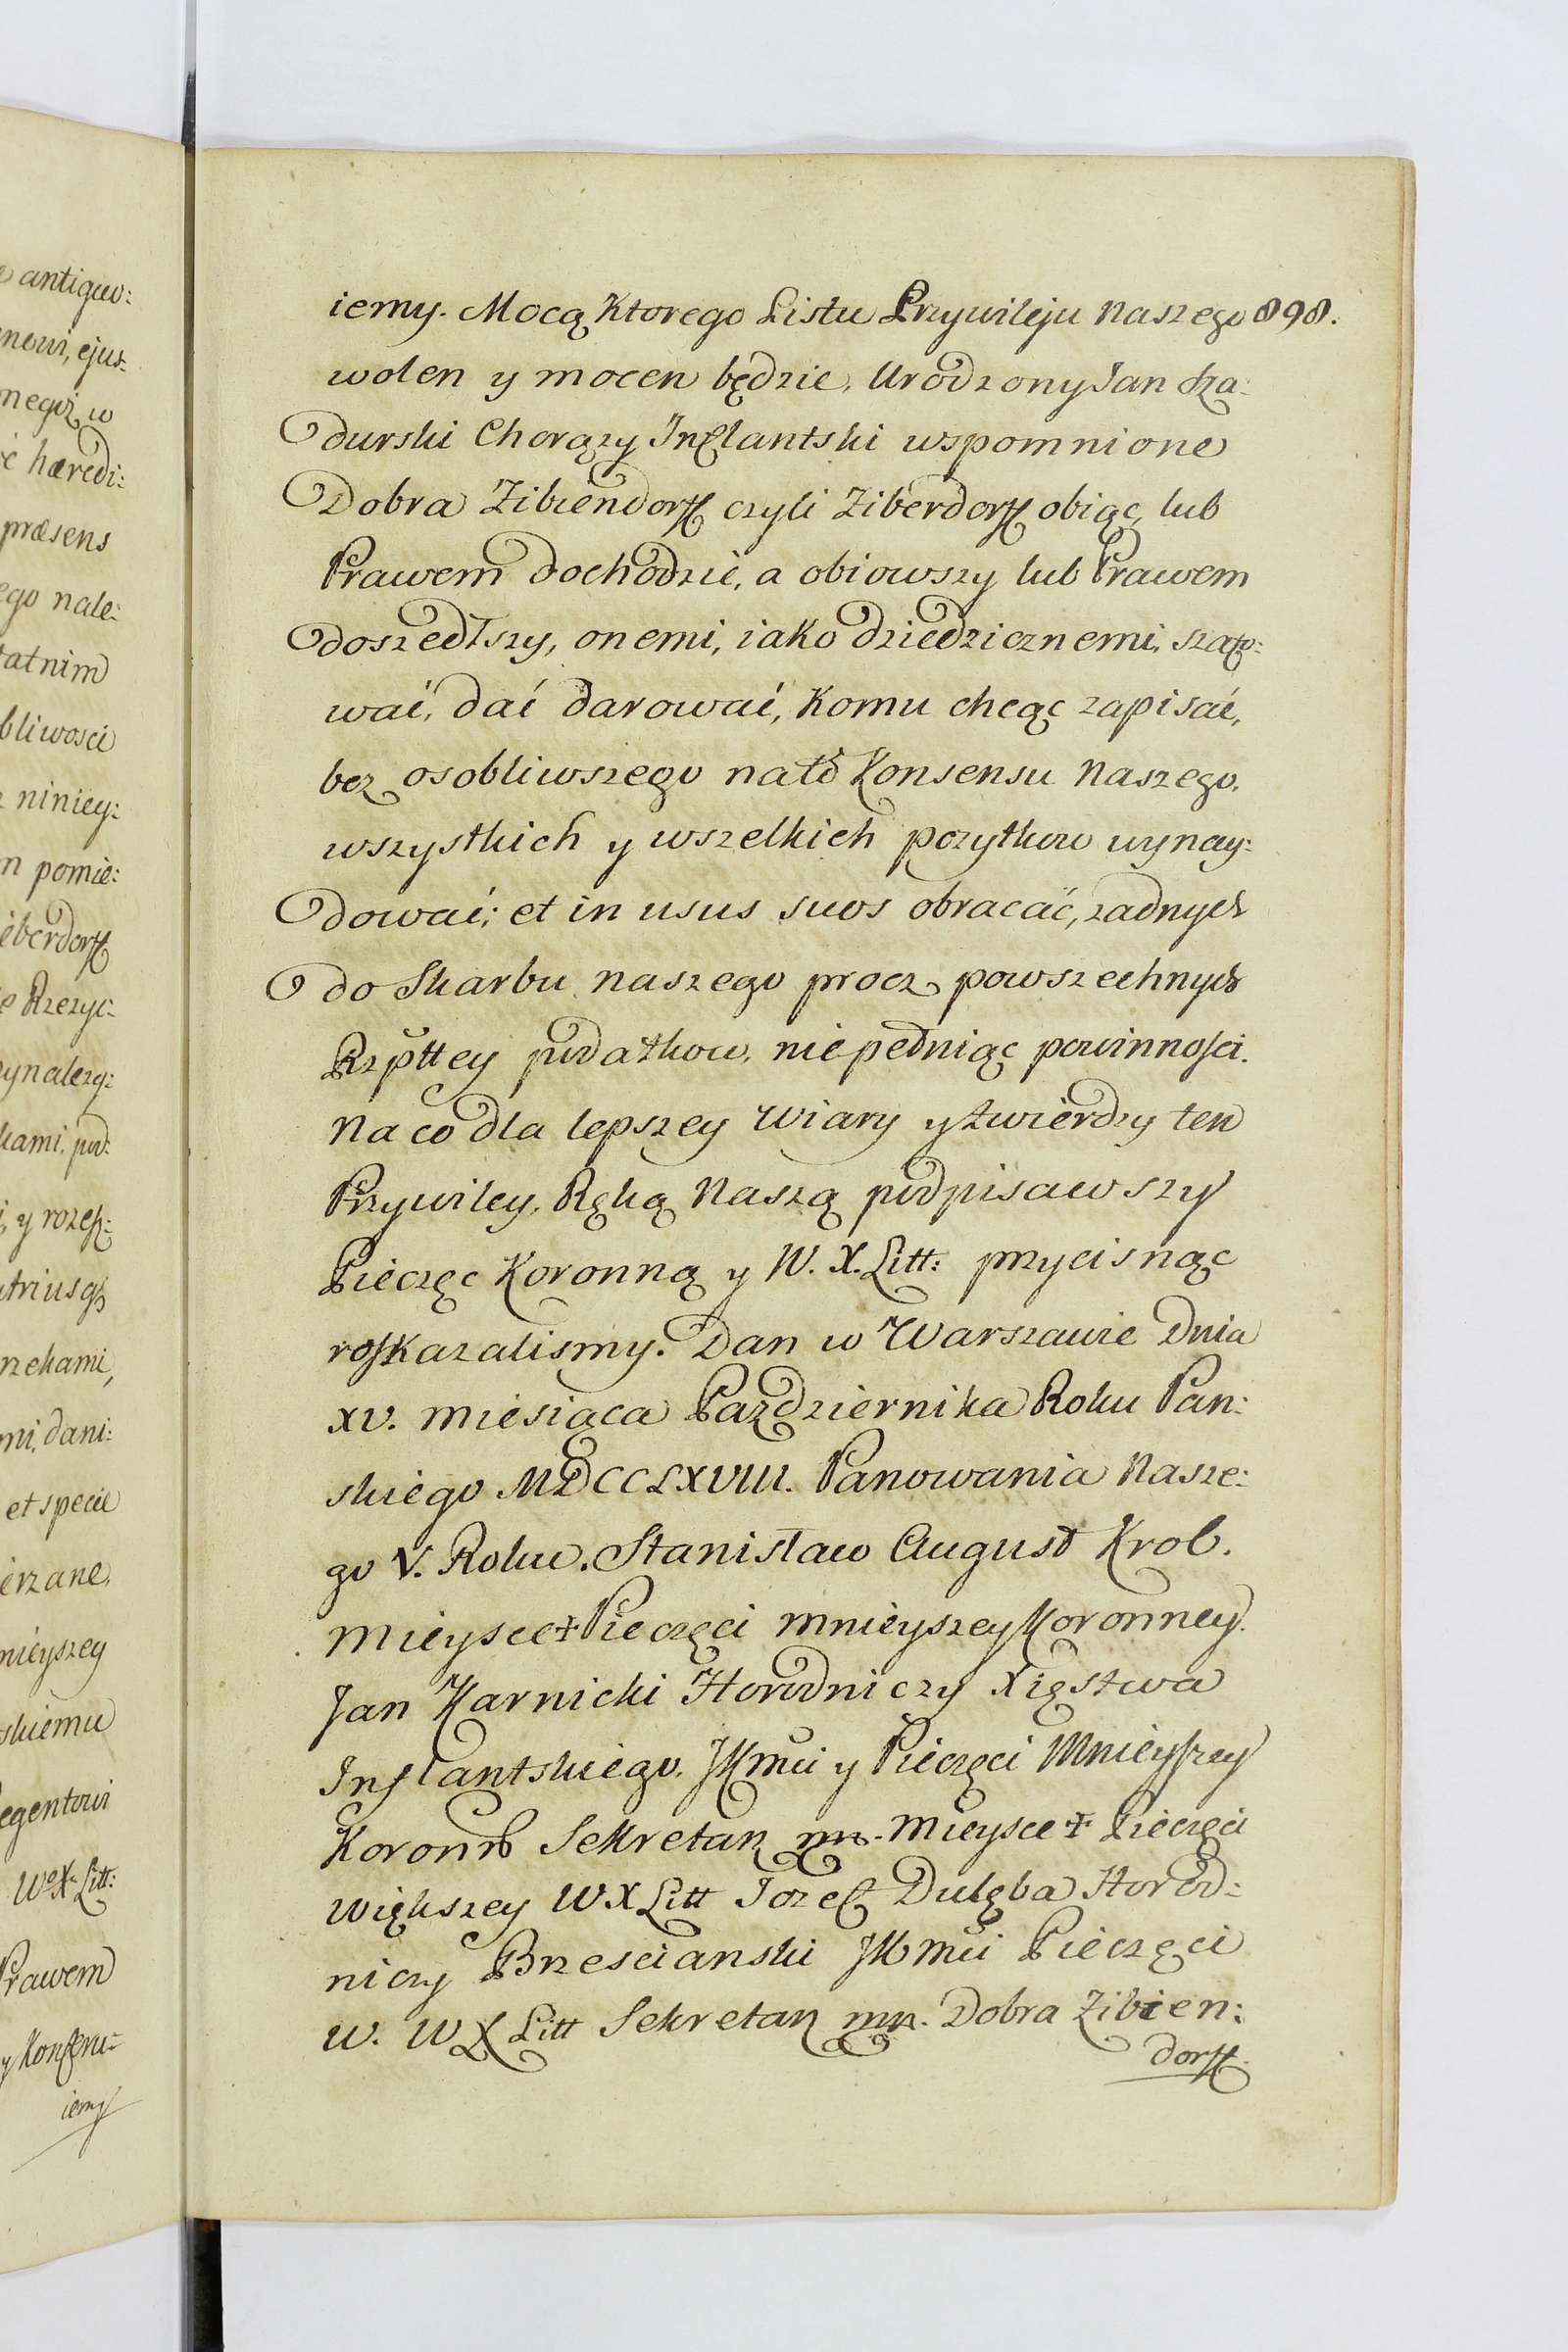 antiquo:
mowi, ejus-
negoż w
ć hæredi:
præsens
ego nale:
tatnim
bliwosci
niniey:
m pomie:
iberdorff
e Rzezyc:
ynalezy:
kami, pod:
i, y rozes:
utriusq
rzekami,
mi, dani:
et specie
ierzane,
nieyszey
skiemu
egentowi
Wo X. Litt:
Prawem
y Konferu-
iemy
iemy. Mocą Ktorego Listu Przywileju Naszego 898.
wolen y mocen będzie, Urodzony Jan Sza:
durski Chorązy Inflantski wspomnione
Dobra Zibiendorff czyli Ziberdorff obiąc, lub
Prawem dochodzić, a obiowszy lub Prawem
doszedłszy, onemi, iako dziedzicznemi, szafo:
wać, dać darować, Komu chcąc zapisać,
bez osobliwszego nató Konsensu Naszego,
wszystkich y wszelkich pozytkow wynay:
dować; et in usus suos obracać, zadnych
do Skarbu naszego procz powszechnych
Rzpttey podatkow, niepełniąc powinności.
Na co dla lepszey Wiary y twierdzy ten
Przywiley, Ręką Naszą podpisawszy
Pieczęc Koronną y W. X. Litt: przycisnąc
roskazalismy. Dan w Warszawie Dnia
XV. Miesiąca Pazdziernika Roku Pan:
skiego MDCCLXVIII. Panowania Nasze:
go V. Roku. Stanisław August Krol.
Mieysce + Pieczęci mnieyszey Koronney.
Jan Karnicki Horodniczy Xięstwa
Inflantskiego, JKmći y Pieczęci Mnieyszey
Koronn Sekretarz mp. Mieysce + Pieczęci
większey WXLitt Jozef Dulęba Horod:
niczy Brzescianski JKmći Pieczęci
W. W X Litt Sekretarz mp. Dobra Zibien:
dorff.